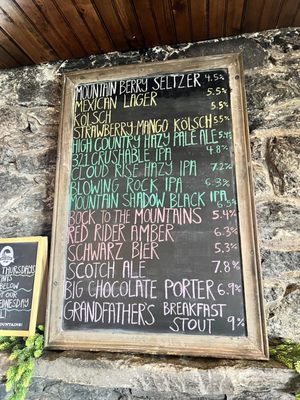 MOUNTAIN BERRY SELTZER 4.5%
MEXICAN LAGER 5.5%
KÖLSCH 5.5%
STRAWBERRY-MANGO KÖLSCH 5.5%
HIGH COUNTRY HAZY PALE ALE 5.4%
321 CRUSHABLE IPA 4.8%
CLOUD RISE HAZY IPA 7.2%
BLOWING ROCK IPA 6.3%
MOUNTAIN SHADOW BLACK IPA 5.5%
BOCK TO THE MOUNTAINS 5.4%
RED RIDER AMBER 6.3%
SCHWARZ BIER 5.3%
SCOTCH ALE 7.8%
BIG CHOCOLATE PORTER 6.9%
GRANDFATHERS BREAKFAST
STOUT 9%
THURSDAYS
BELOW
OUR